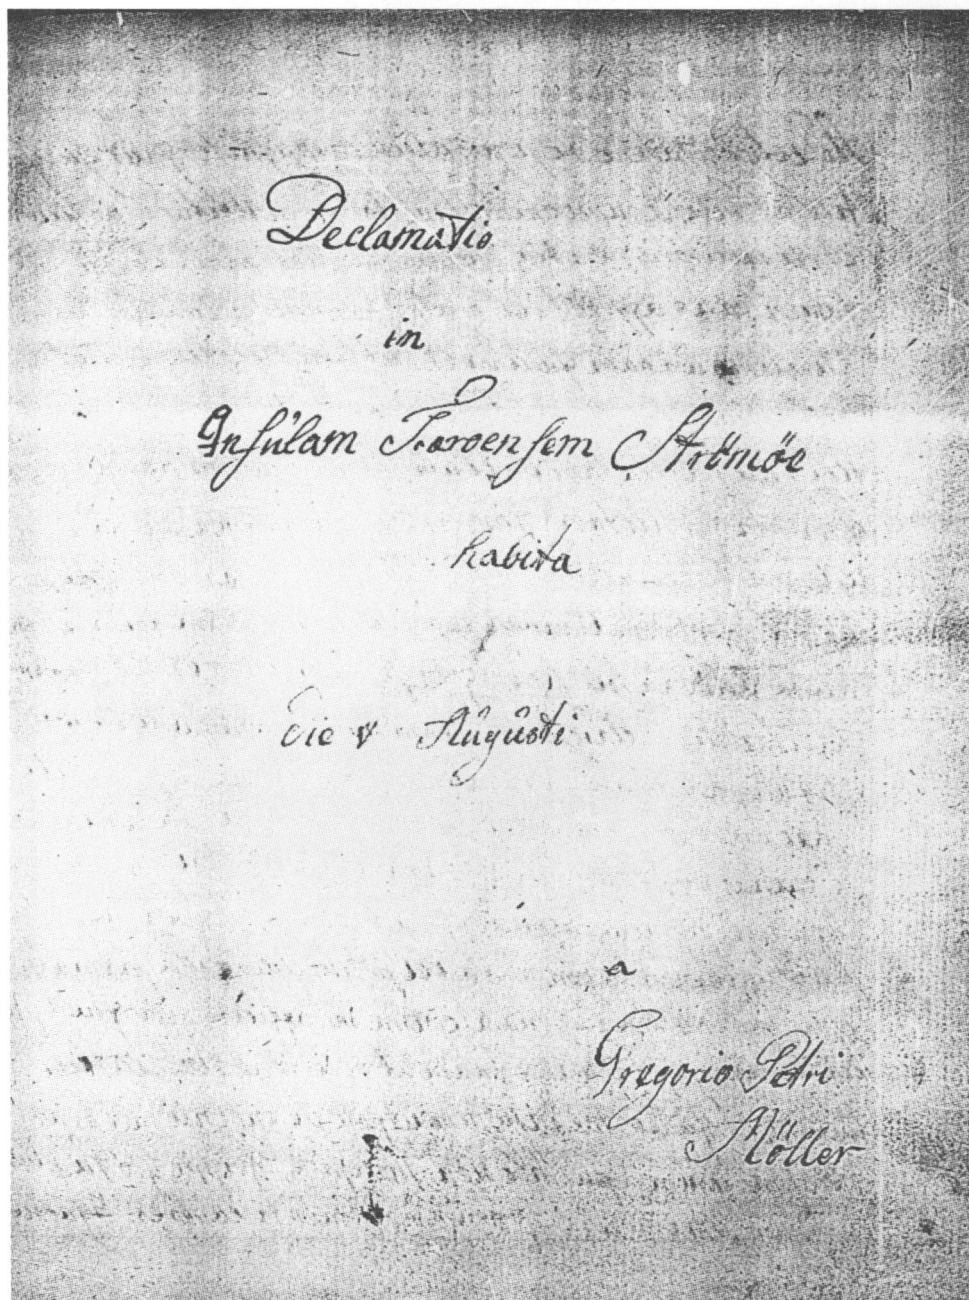 Declamatio
in
Insùlam Færoensem Strömöe
habita
die V Aùgùsti
a
Gregorio Petri
Möller